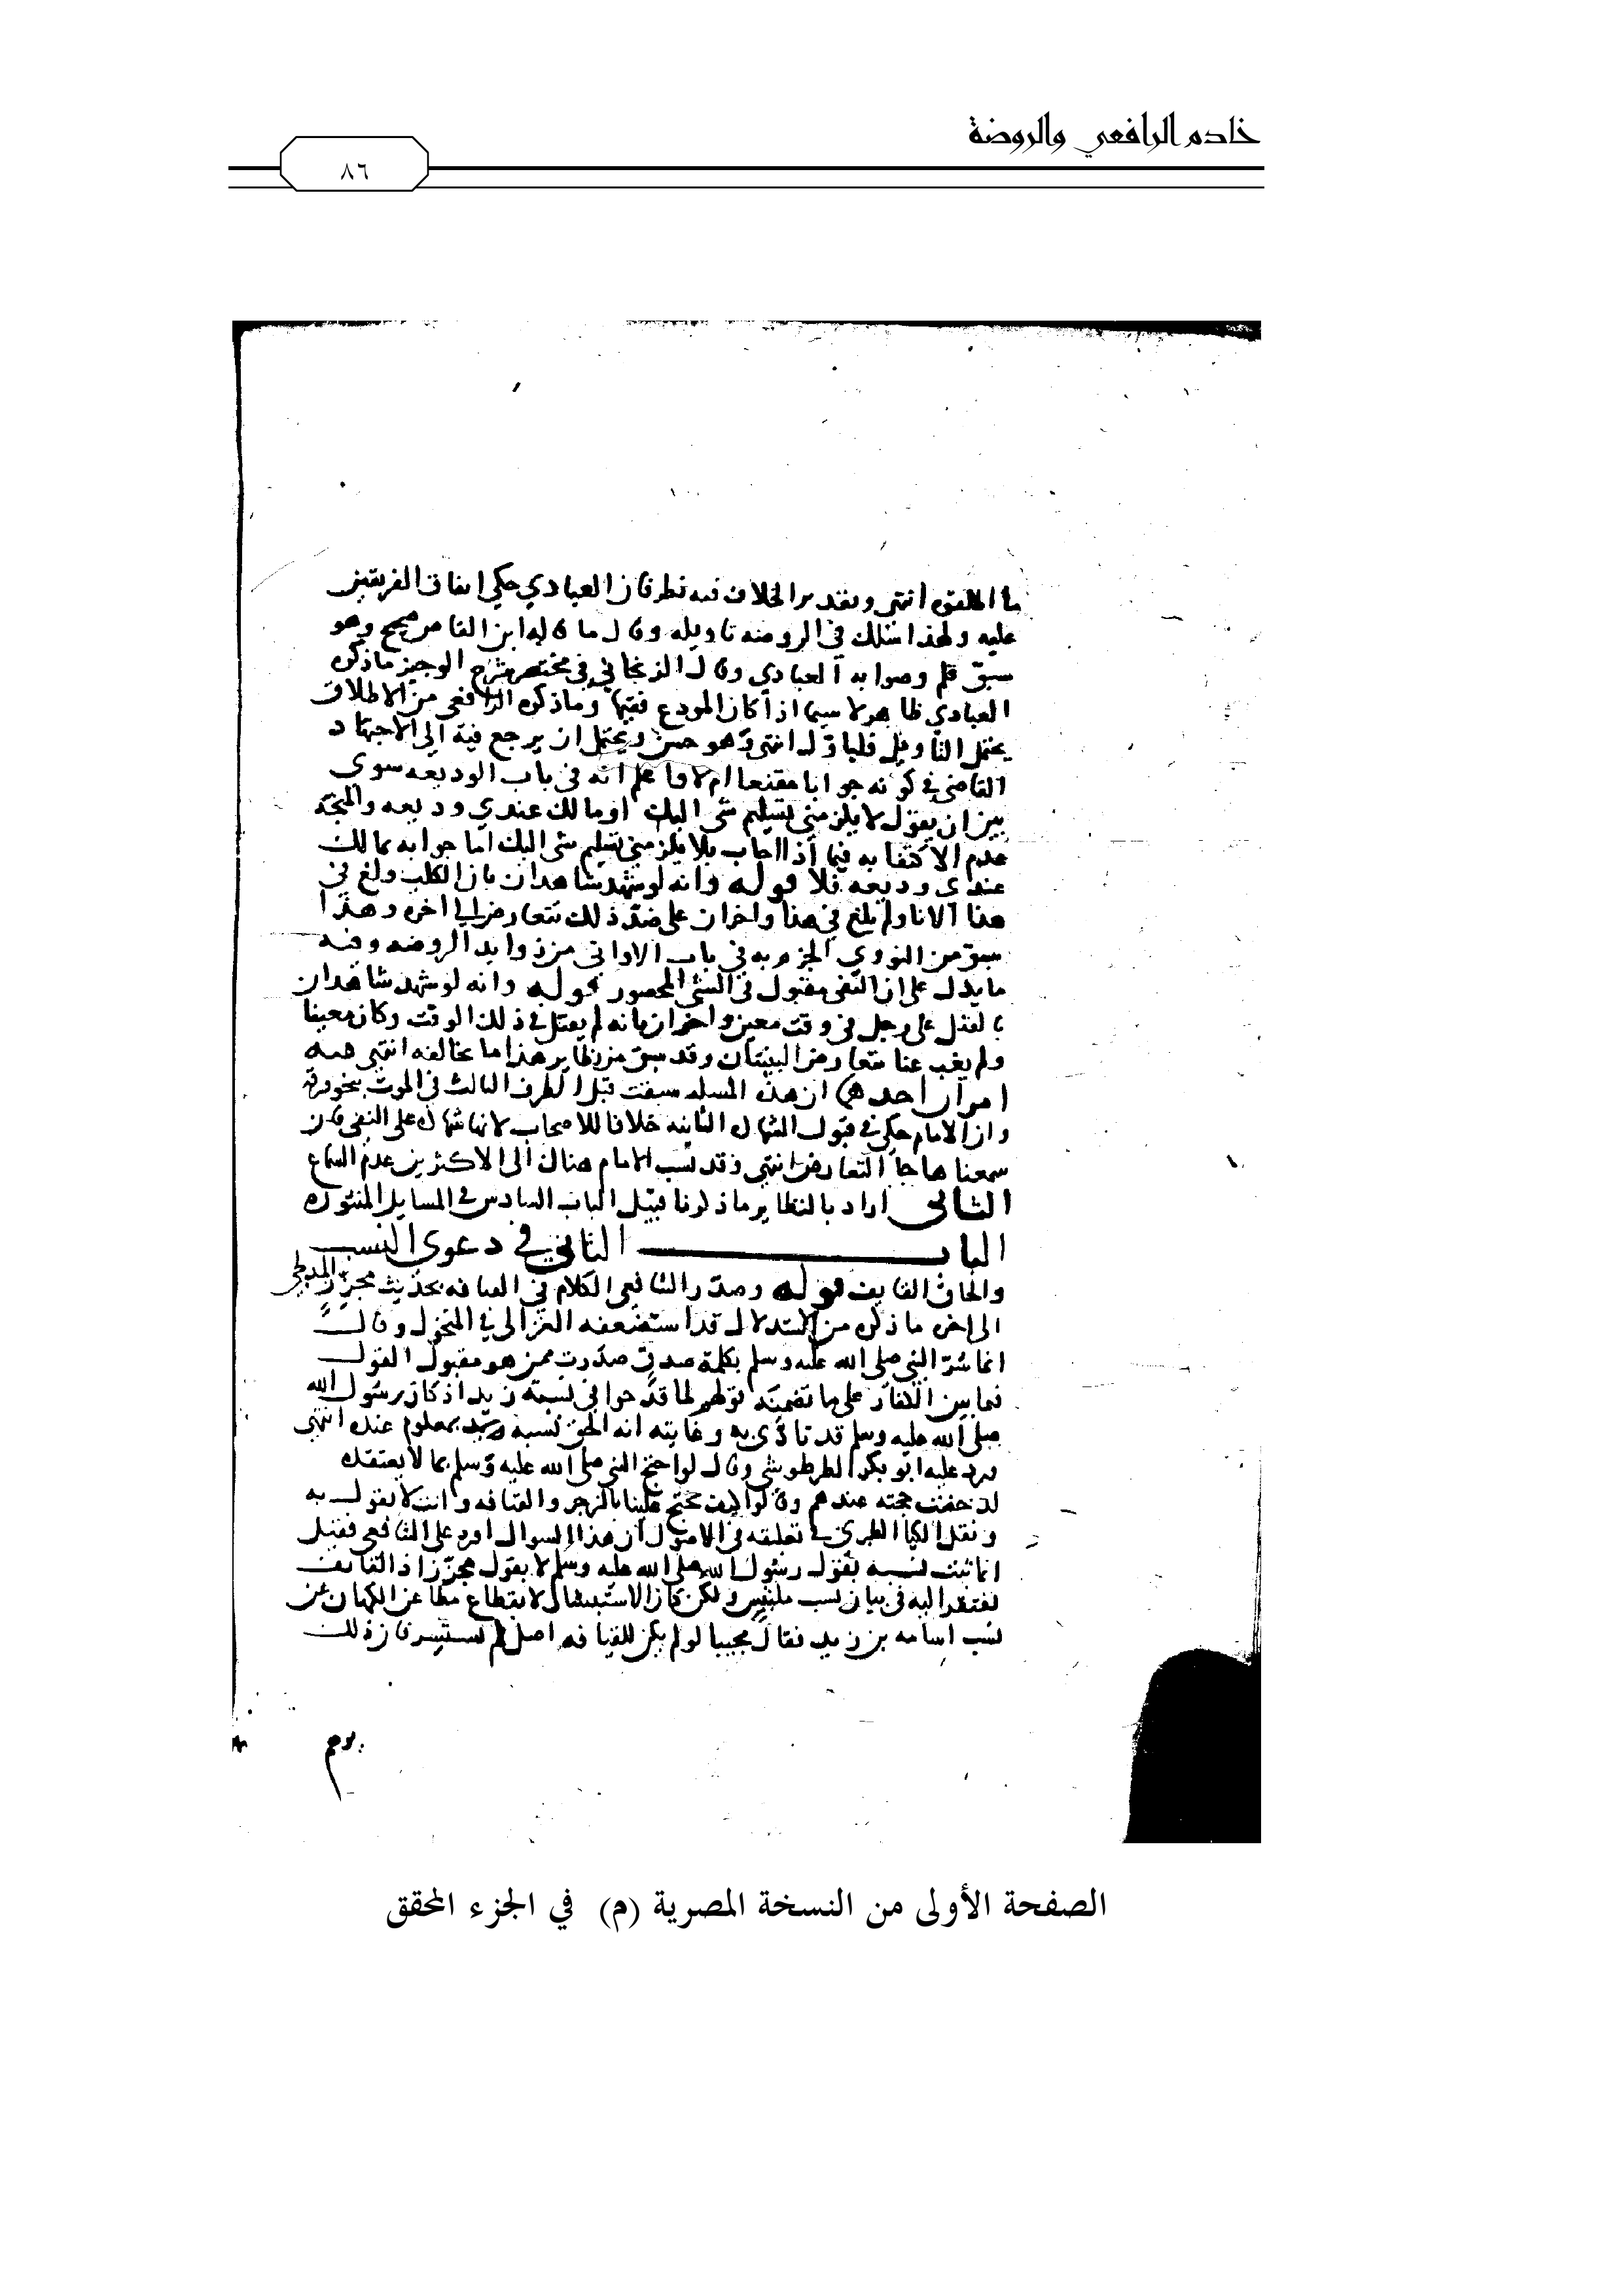 خادم الرافعي والروضة
٨٦
ما اطلقوه انتهى وتقدير الخلاف فيه نظر فان العبادي حكى اتفاق الفريقين
عليه ولهذا سلك في الروضه تاويله وقال ما قاله ابن القاص صحيح وهو
سبق قلم وصوابه العبادي وقال الزنجاني في مختصر شرح الوجيز ما ذكره
العبادي ظاهر لا سيما اذا كان المودع فقيها وما ذكره الرافعي من الاطلاق
يحتمل التاويل فليأول انتهى وهو حسن ويحتمل ان يرجع فيه الى الاجتهاد
القاضي في كونه جوابا مقنعا ام لا واعلم انه في باب الوديعه سوى
بين ان يقول لا يلزمني تسليم شي اليك او مالك عندي وديعه والمتجه
عدم الاكتفا به فيما اذا اجاب بلا يلزمني تسليم شي اليك اما جوابه بمالك
عندي وديعه فلا قوله وانه لو شهد شاهدان بان الكلب ولغ في
هذا الانا ولم يلغ في هذا واخران على ضد ذلك تتعارض الى اخره وهذا
سبق من النووي الجزم به في باب الاواني من زوايد الروضه وفيه
ما يدل على ان النفي مقبول في الشي المحصور قوله وانه لو شهد شاهدان
بالقتل على رجل في وقت معين واخران بانه لم يقتل في ذلك الوقت وكان معينا
ولم يغب عنا تتعارض البينتان وقد سبق من نظاير هذا ما يخالفه انتهى فيه
امران احدهما ان هذه المسله سبقت قبل الطرف الثالث في الموت بنحو ورقه
وان الامام حكى في قبول الشهاده الثانيه خلافا للاصحاب لانها شهاده على النفي فان
سمعناها جا التعارض انتهى وقد نسب الامام هناك الى الاكثرين عدم السماع
الثاني اراد بالنظاير ما ذكرنا قبيل الباب السادس في المسايل المنثوره
الباب الثاني في دعوى النسب
والحاق القايف قوله وصدر الشافعي الكلام في القيافه بحديث مجزز المدلجي
الى اخره ما ذكره من الاستدلال قد استضعفه الغزالي في المنخول وقال
انما سر النبي صلى الله عليه وسلم بكلمة صدق صدرت ممن هو مقبول القول
فيما بين الكفار على ما تضمنه قولهم لما قدحوا في نسبة زيد اذ كان رسول الله
صلى الله عليه وسلم قد تاذى به وغايته انه الحق نسبه بمعلوم عنده انتهى
ورد عليه ابو بكر الطرطوشي وقال لو احتج النبي صلى الله عليه وسلم بما لا يعتقده
لدحضت حجته عندهم وقالوا كيف تحتج علينا بالزجر والقيافه وانت لا تقول به
ونقل الكيا الطبري في تعليقه في الاصول ان هذا السوال اورد على الشافعي فقيل
انما ثبت نسبه بقول رسول الله صلى الله عليه وسلم لا بقول مجزز اذ القايف
يفتقر اليه في بيان نسب ملتبس ولكن كان الاستبشار لانقطاع مطاعن الكهان عن
نسب اسامه بن زيد فقال مجيبا لو لم يكن للقيافه اصل لم يستبشر فان ذلك
يوهم
الصفحة الأولى من النسخة المصرية (م) في الجزء المحقق